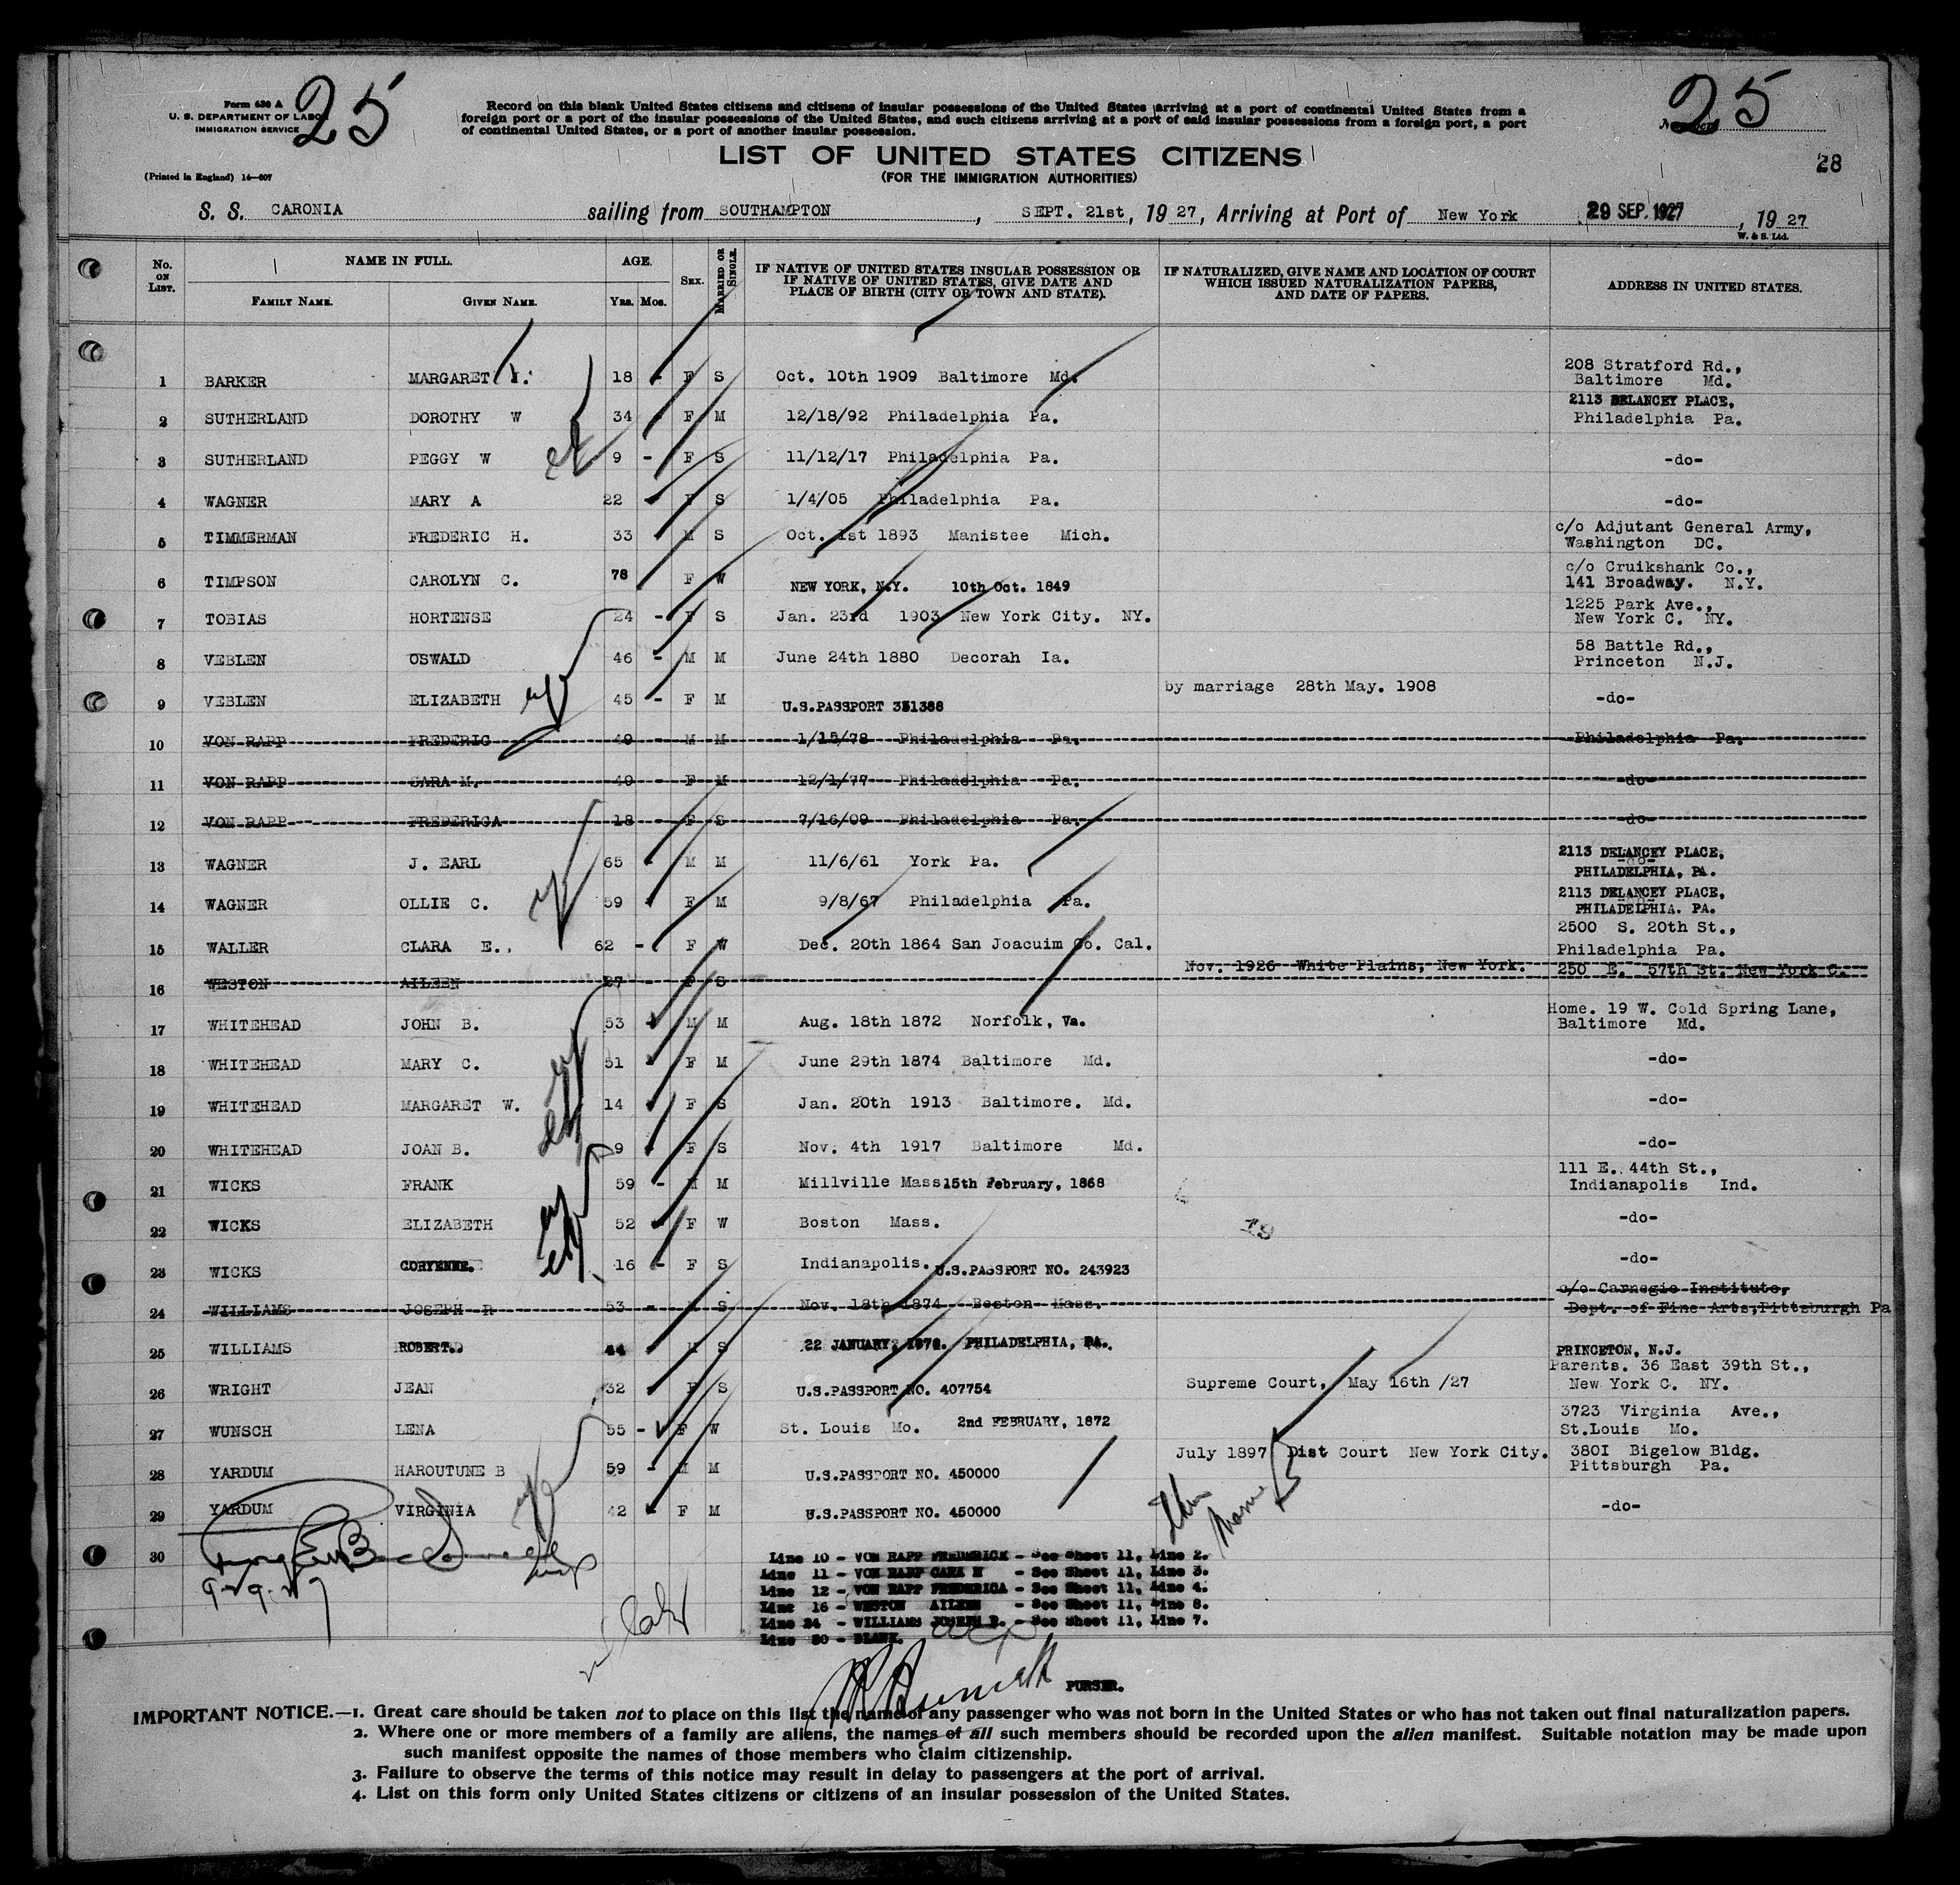 25
25
Form 630 A
U. S. DEPARTMENT OF LABOR
IMMIGRATION SERVICE
(Printed in England) 14—607
Record on this blank United States citizens and citizens of insular possessions of the United States arriving at a port of continental United States from a
foreign port or a port of the insular possessions of the United States, and such citizens arriving at a port of said insular possessions from a foreign port, a port
of continental United States, or a port of another insular possession.
LIST OF UNITED STATES CITIZENS
(FOR THE IMMIGRATION AUTHORITIES)
28
S. S. CARONIA sailing from SOUTHAMPTON, SEPT. 21st, 1927, Arriving at Port of New York 29 SEP. 1927, 1927
W. & S. Ltd.
No. ON LIST. NAME IN FULL. FAMILY NAME. GIVEN NAME. AGE. YRS. MOS. SEX. MARRIED OR SINGLE. IF NATIVE OF UNITED STATES INSULAR POSSESSION OR IF NATIVE OF UNITED STATES, GIVE DATE AND PLACE OF BIRTH (CITY OR TOWN AND STATE). IF NATURALIZED, GIVE NAME AND LOCATION OF COURT WHICH ISSUED NATURALIZATION PAPERS, AND DATE OF PAPERS. ADDRESS IN UNITED STATES.
1 BARKER MARGARET 18 - F S Oct. 10th 1909 Baltimore Md. 208 Stratford Rd., Baltimore Md.
2 SUTHERLAND DOROTHY W 34 - F M 12/18/92 Philadelphia Pa. 2113 DELANCEY PLACE, Philadelphia Pa.
3 SUTHERLAND PEGGY W 9 - F S 11/12/17 Philadelphia Pa. -do-
4 WAGNER MARY A 22 - F S 1/4/05 Philadelphia Pa. -do-
5 TIMMERMAN FREDERIC H. 33 M S Oct. 1st 1893 Manistee Mich. c/o Adjutant General Army, Washington DC.
6 TIMPSON CAROLYN C. 78 F W NEW YORK, N.Y. 10th Oct. 1849 c/o Cruikshank Co., 141 Broadway. N.Y.
7 TOBIAS HORTENSE 24 - F S Jan. 23rd 1903 New York City. NY. 1225 Park Ave., New York C. NY.
8 VEBLEN OSWALD 46 - M M June 24th 1880 Decorah Ia. 58 Battle Rd., Princeton N.J.
9 VEBLEN ELIZABETH 45 - F M U.S.PASSPORT 351388 by marriage 28th May. 1908 -do-
10 VON RAPP FREDERIC 49 M M 1/15/78 Philadelphia Pa. Philadelphia Pa.
11 VON RAPP CARA M. 49 F M 12/1/77 Philadelphia Pa. -do-
12 VON RAPP FREDERICA 18 F S 7/16/09 Philadelphia Pa. -do-
13 WAGNER J. EARL 65 - M M 11/6/61 York Pa. 2113 DELANCEY PLACE, PHILADELPHIA, PA.
14 WAGNER OLLIE C. 59 - F M 9/8/67 Philadelphia Pa. 2113 DELANCEY PLACE, PHILADELPHIA. PA.
15 WALLER CLARA E., 62 - F W Dec. 20th 1864 San Joacuim Co. Cal. 2500 S. 20th St., Philadelphia Pa.
16 WESTON AILEEN 27 F S Nov. 1926 White Plains, New York. 250 E. 57th St. New York C.
17 WHITEHEAD JOHN B. 53 - M M Aug. 18th 1872 Norfolk, Va. Home. 19 W. Cold Spring Lane, Baltimore Md.
18 WHITEHEAD MARY C. 51 - F M June 29th 1874 Baltimore Md. -do-
19 WHITEHEAD MARGARET W. 14 - F S Jan. 20th 1913 Baltimore. Md. -do-
20 WHITEHEAD JOAN B. 9 - F S Nov. 4th 1917 Baltimore Md. -do-
21 WICKS FRANK 59 - M M Millville Mass 15th February, 1868 111 E. 44th St., Indianapolis Ind.
22 WICKS ELIZABETH 52 - F W Boston Mass. -do-
23 WICKS CORYENNE. 16 - F S Indianapolis. U.S.PASSPORT NO. 243923 -do-
24 WILLIAMS JOSEPH R 53 - M S Nov. 18th 1874 Boston Mass. c/o Carnegie Institute, Dept. of Fine Arts, Pittsburgh Pa
25 WILLIAMS ROBERT. 44 M S 22 JANUARY, PHILADELPHIA, PA. PRINCETON, N.J.
26 WRIGHT JEAN 32 F S U.S.PASSPORT NO. 407754 Supreme Court, May 16th /27 Parents. 36 East 39th St., New York C. NY.
27 WUNSCH LENA 55 - F W St. Louis Mo. 2nd FEBRUARY, 1872 3723 Virginia Ave., St.Louis Mo.
28 YARDUM HAROUTUNE B 59 - M M U.S.PASSPORT NO. 450000 July 1897 Dist Court New York City. 380I Bigelow Bldg. Pittsburgh Pa.
29 YARDUM VIRGINIA 42 F M U.S.PASSPORT NO. 450000 -do-
30
Line 10 - VON RAPP FREDERICK - See Sheet 11, Line 2.
Line 11 - VON RAPP CARA M - See Sheet 11, Line 3.
Line 12 - VON RAPP FREDERICA - See Sheet 11, Line 4.
Line 16 - WESTON AILEEN - See Sheet 11, Line 8.
Line 24 - WILLIAMS JOSEPH R. - See Sheet 11, Line 7.
Line 30 - BLANK.
PURSER.
IMPORTANT NOTICE.—1. Great care should be taken not to place on this list the name of any passenger who was not born in the United States or who has not taken out final naturalization papers.
2. Where one or more members of a family are aliens, the names of all such members should be recorded upon the alien manifest. Suitable notation may be made upon
such manifest opposite the names of those members who claim citizenship.
3. Failure to observe the terms of this notice may result in delay to passengers at the port of arrival.
4. List on this form only United States citizens or citizens of an insular possession of the United States.